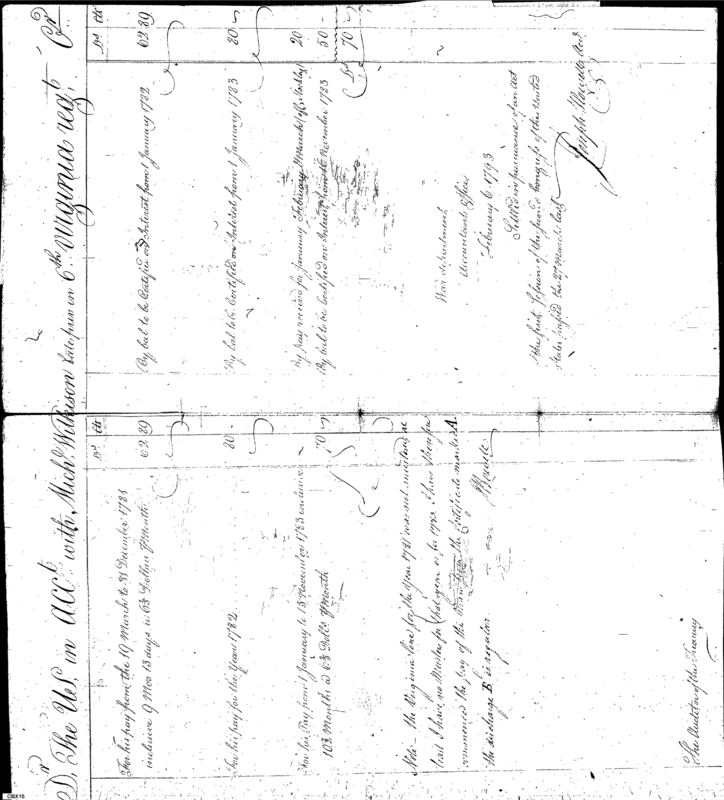 Dr. The U.S. in acct. with Michl. Wilkison late priv in 6th Virginia regt. Cr.
Drs. cts
For his pay from the 19 March to 31 December 1781
inclusive 9 Mos 13 days is 6⅔ Dollars ⅌ Month 62.89
For his pay for the Year 1782. 80 -
For his Pay from 1 January to 15 November 1783 inclusive
10½ Months @ 6⅔ Dolls. ⅌ Month 70 -
Note. the Virginia line for the Year 1781 was not mustered at
least I have no Muster for that year or for 1783. I have therefore
commenced the pay of the Man from the Certificate marked A.
the discharge B is regular
The Auditor of the Treasury
Drs. cts
By bal to be Certifd. on Interest from 1 January 1782 62.89
By bal to be Certified on Interest from 1 January 1783 80 -
By pay received for January February & March 20
By bal to be Certified on Interest from November 1783 50 -
Drs 70 -
War department
Accountants office
February 6 1793
Settled in pursuance of an Act
of the first Session of the second Congress of the United
States passed the 27 March last
Joseph Howell Acct.
CBX15